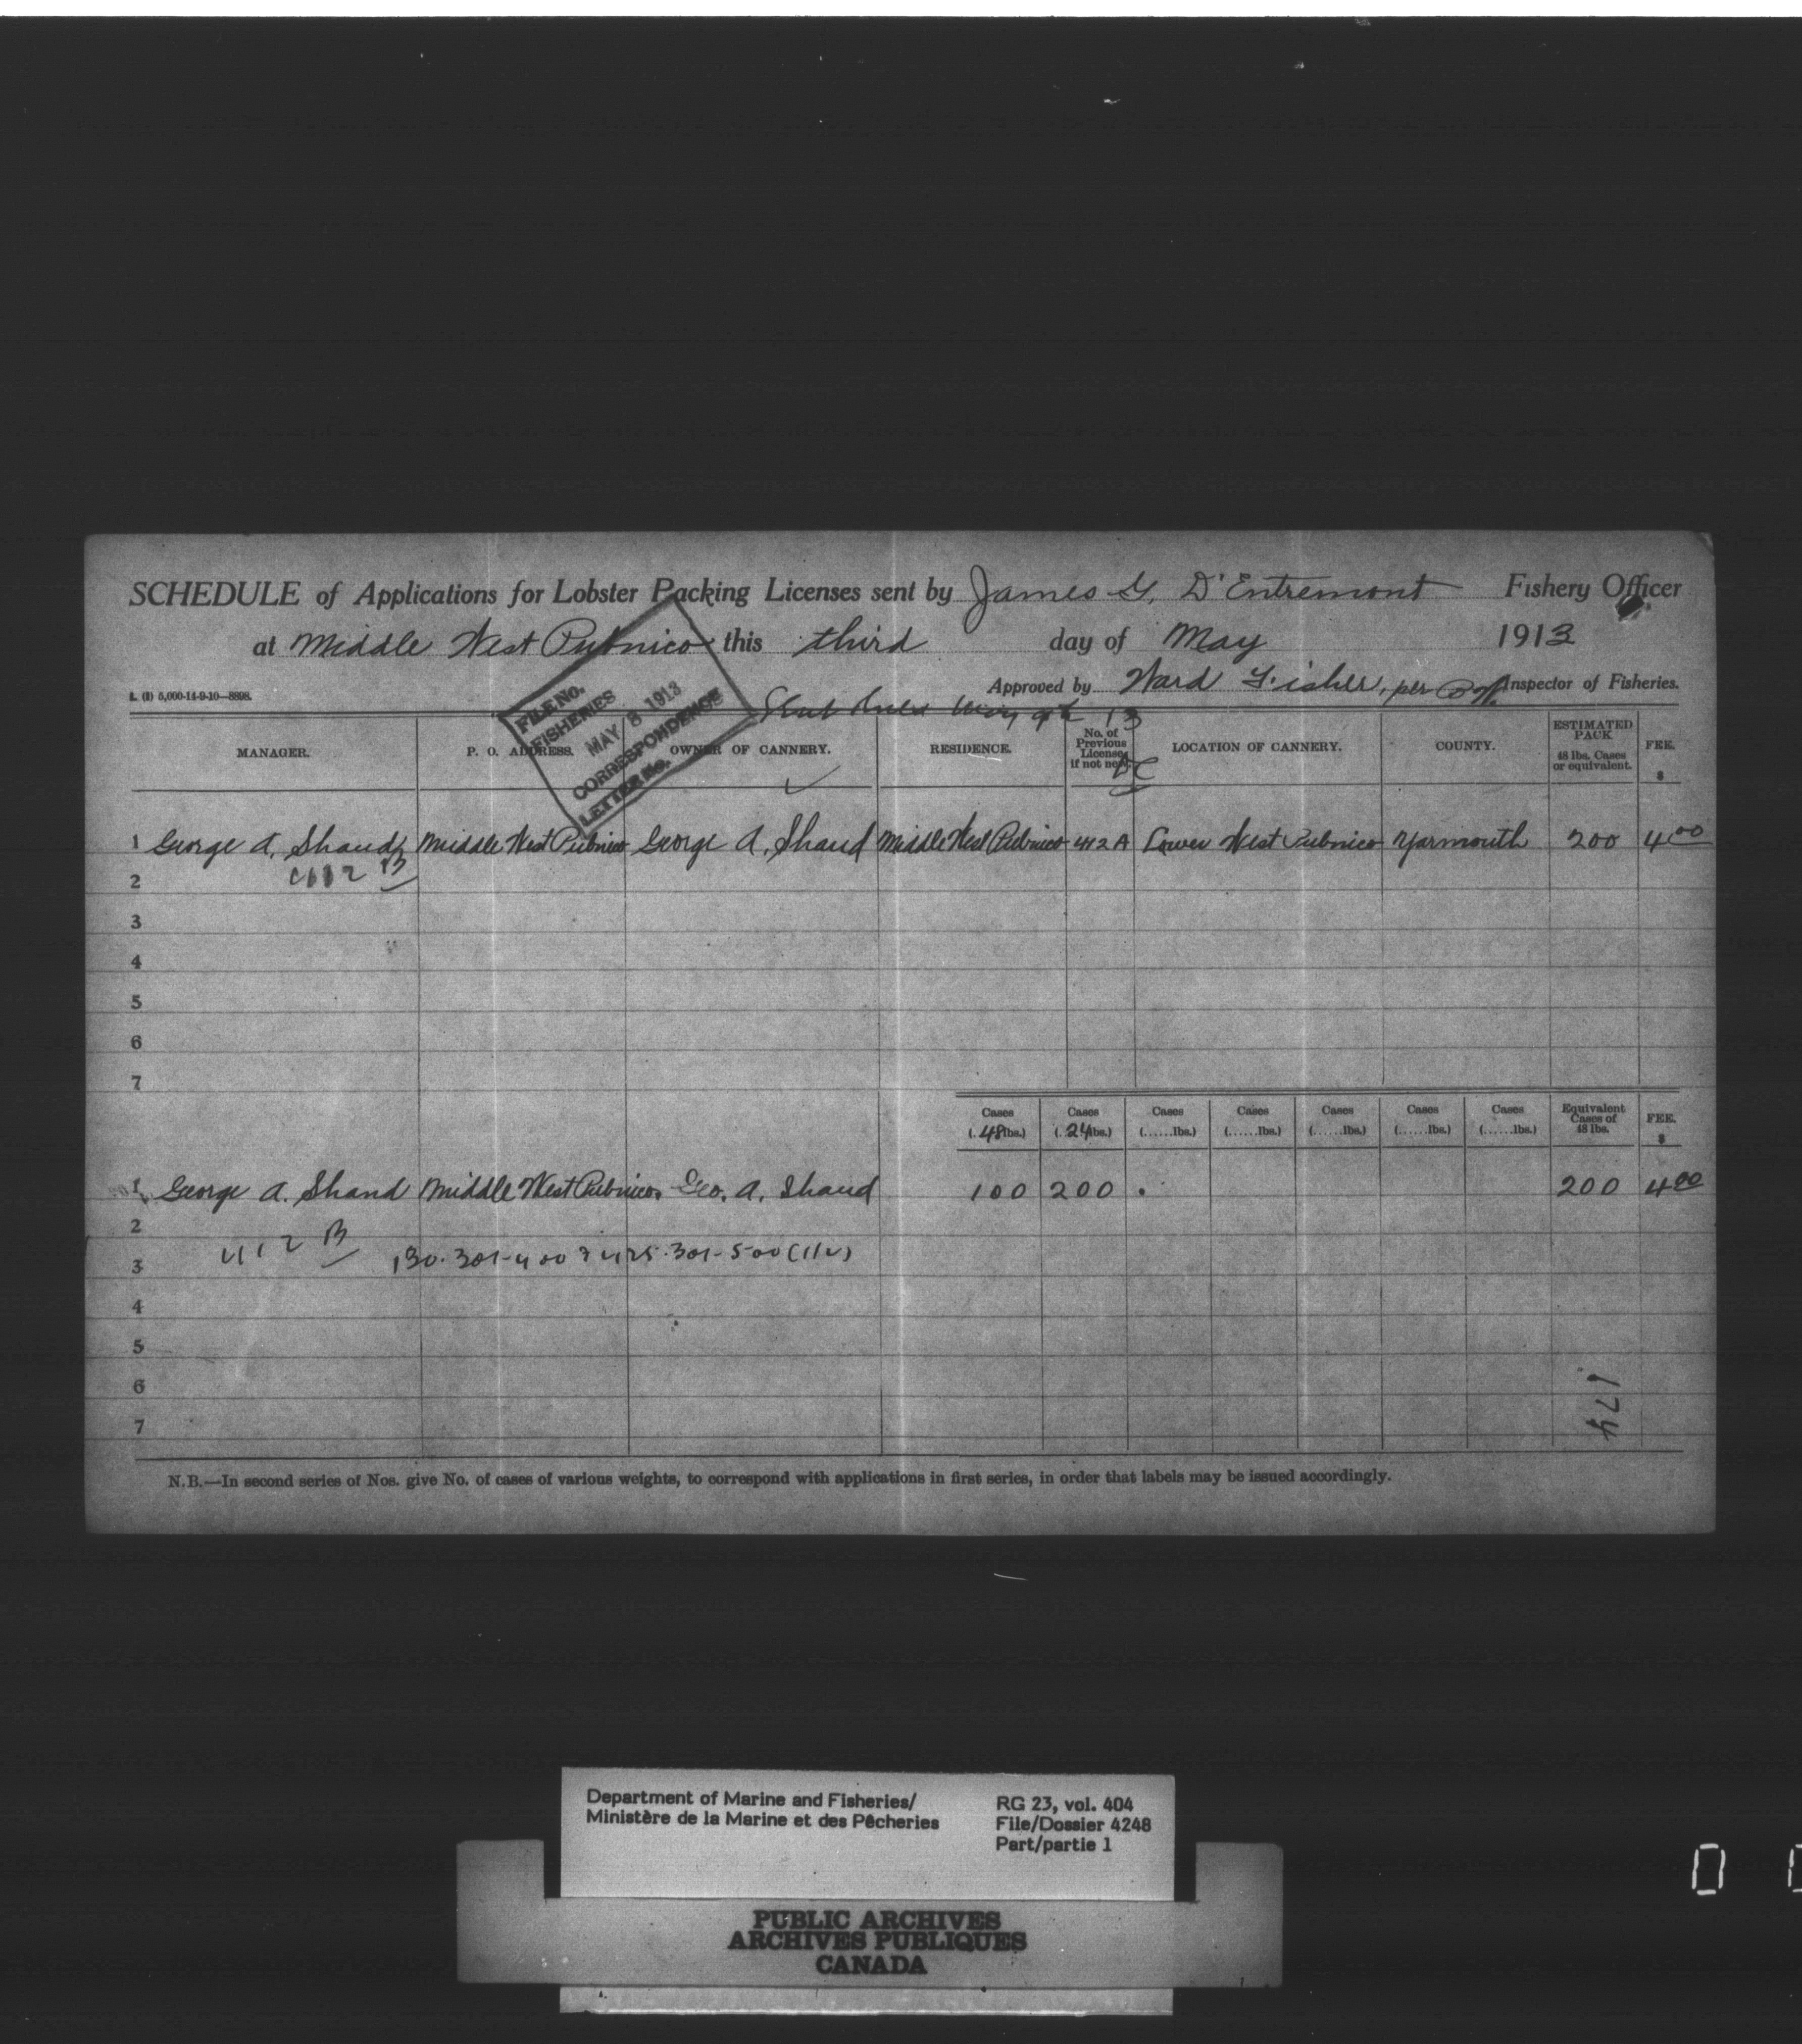 SCHEDULE of Applications for Lobster Packing Licenses sent by James G. D'Entremont Fishery Officer
at Middle West Pubnico this third day of May 1913
L. (1) 5,000-14-9-10—8898.
Approved by Ward Fisher, per Inspector of Fisheries.
May 9th 13
FILE No.
FISHERIES
MAY 8 1913
CORRESPONDENCE
LETTER No.
MANAGER. P. O. ADDRESS. OWNER OF CANNERY. RESIDENCE. No. of Previous License, if not new. LOCATION OF CANNERY. COUNTY. ESTIMATED PACK 48 lbs. Cases or equivalent. FEE. $
1 George A. Shand Middle West Pubnico George A. Shand Middle West Pubnico 412 A Lower West Pubnico Yarmouth 200 4 00
2 412 B
3
4
5
6
7
Cases (.48 lbs.) Cases (.24 lbs.) Cases (......lbs.) Cases (......lbs.) Cases (......lbs.) Cases (......lbs.) Cases (......lbs.) Equivalent Cases of 48 lbs. FEE. $
1 George A. Shand Middle West Pubnico. Geo. A. Shand 100 200 200 4 00
2
412 B 130.301-400 425.301-500
3
4
5
6
7
174
N.B.—In second series of Nos. give No. of cases of various weights, to correspond with applications in first series, in order that labels may be issued accordingly.
Department of Marine and Fisheries/
Ministère de la Marine et des Pêcheries
RG 23, vol. 404
File/Dossier 4248
Part/partie 1
PUBLIC ARCHIVES
ARCHIVES PUBLIQUES
CANADA
0